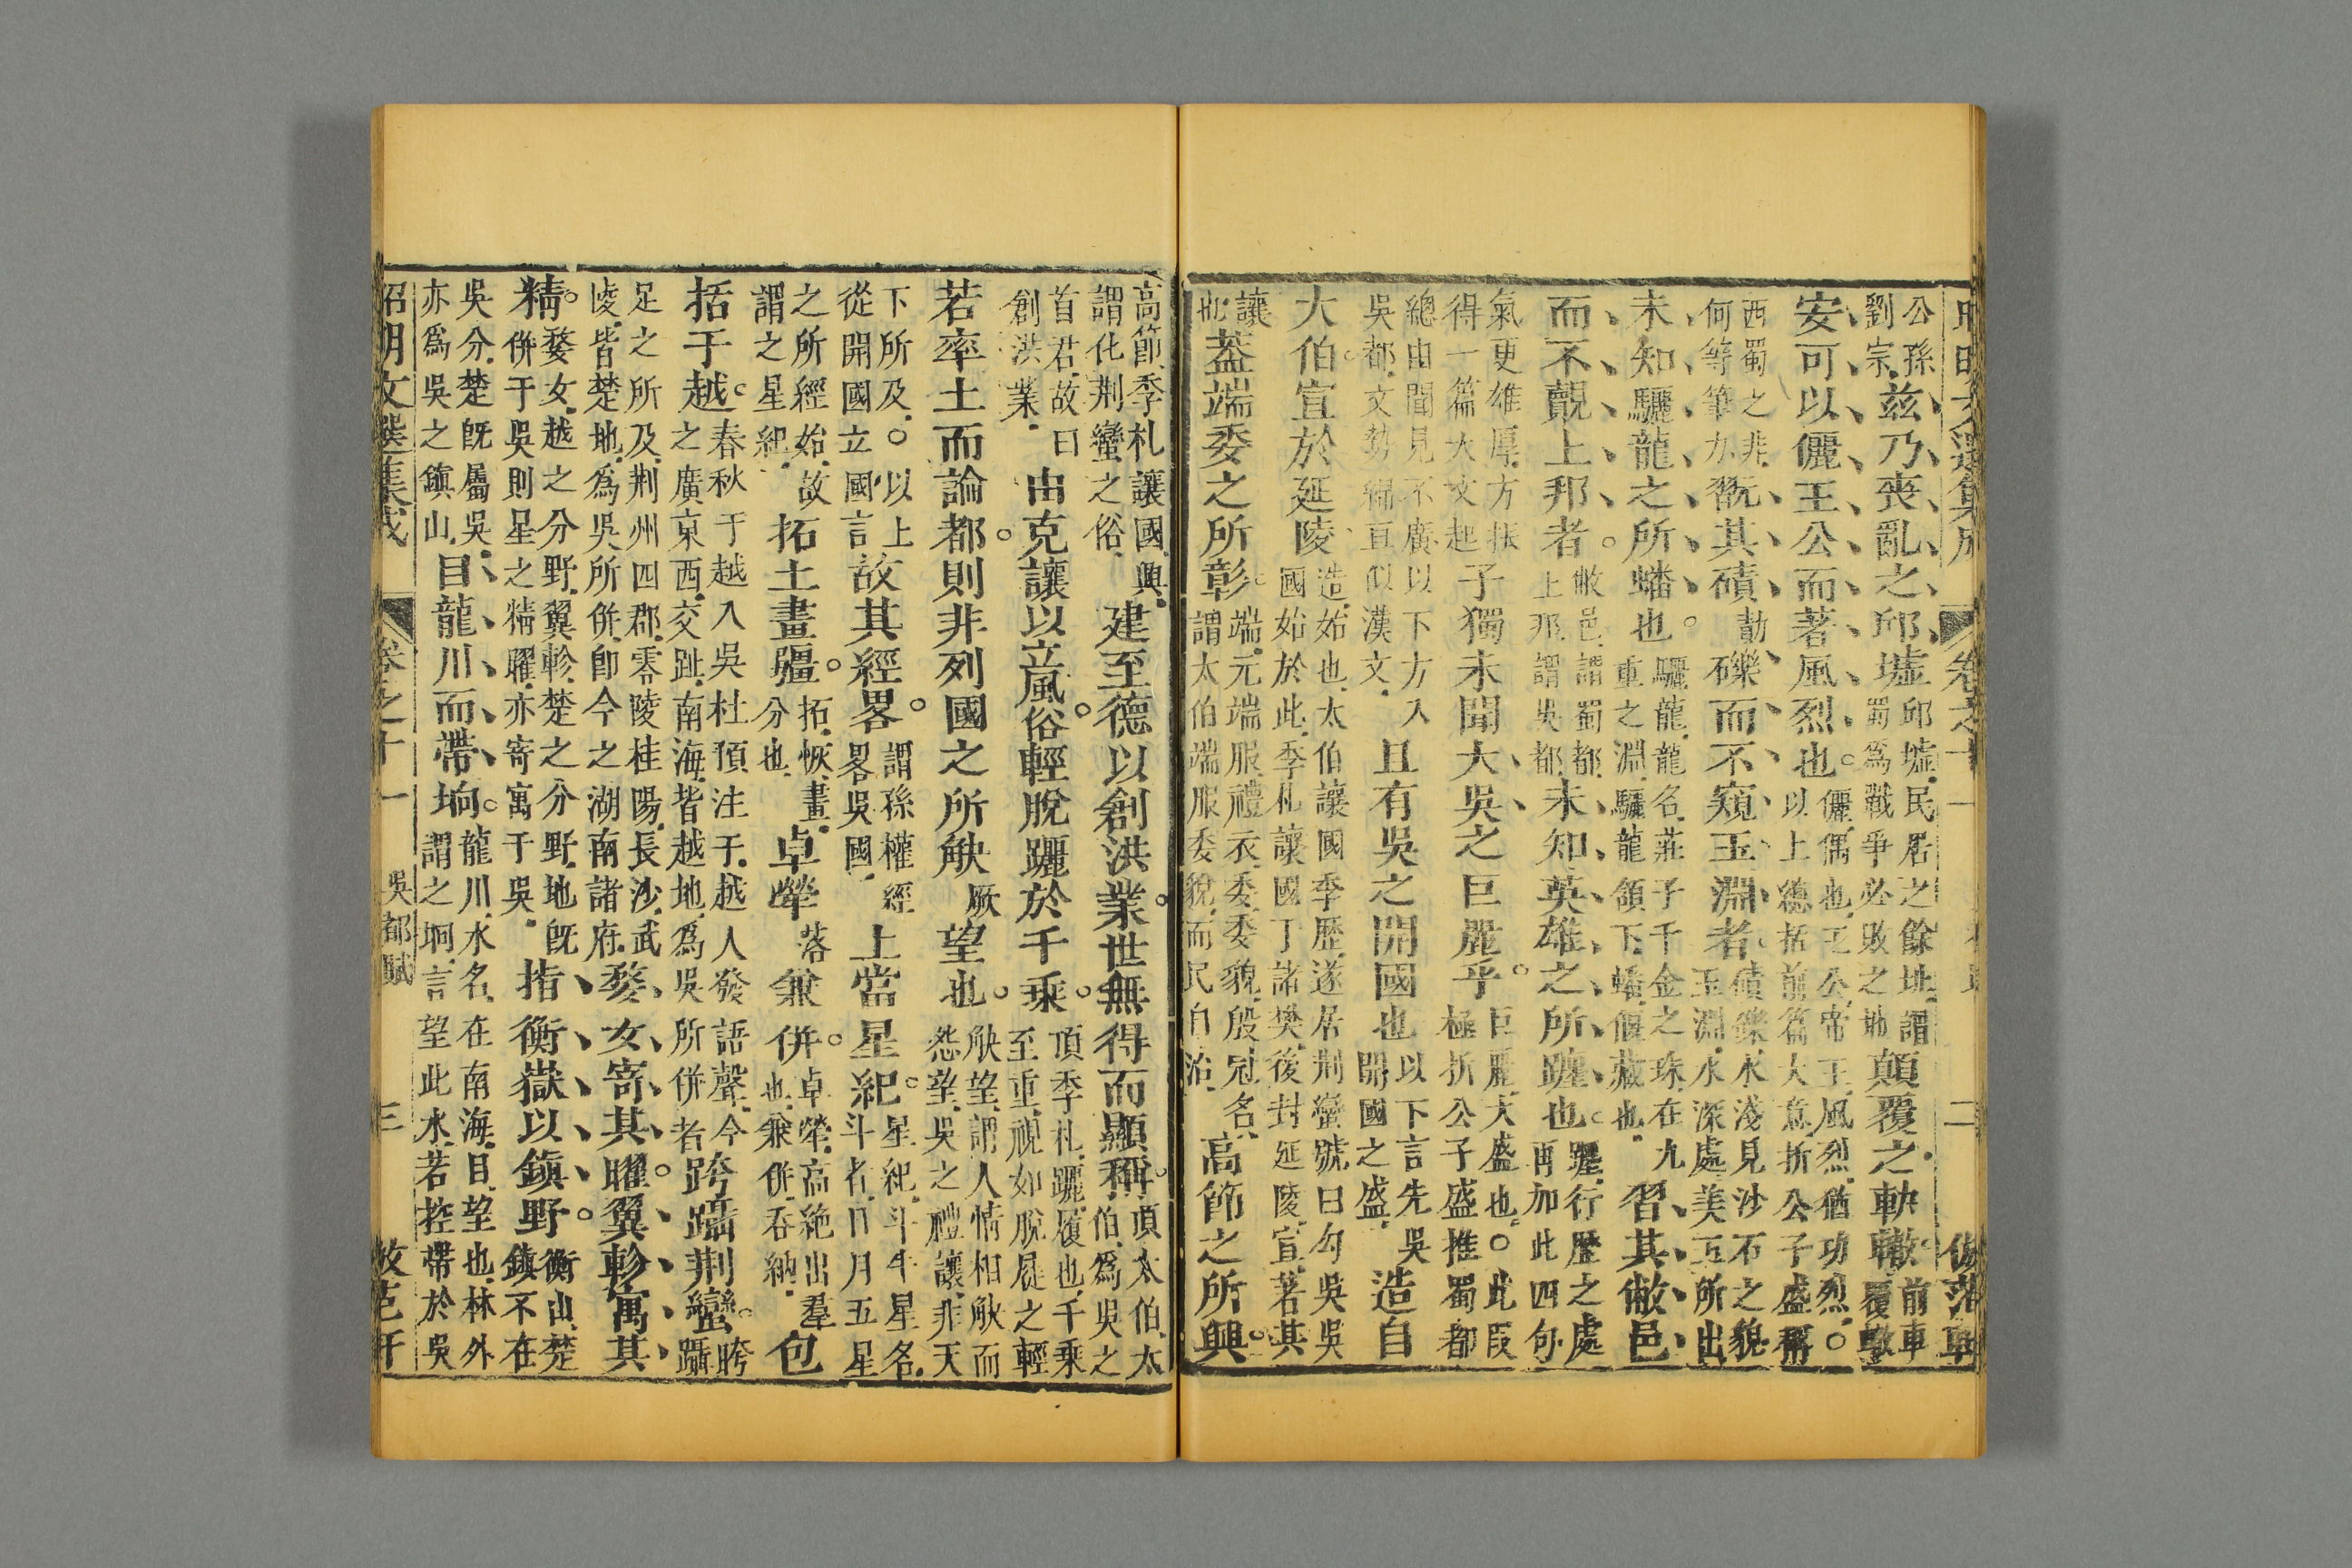 昭明文選集成 卷之十一 二
公孫
劉宗
兹乃喪亂之邱墟
邱墟民居之餘址謂
蜀爲戰爭必敗之地
顛覆之軌轍
前車
覆轍
安可以儷王公而著風烈也
儷偶也王公帝王風烈猶功烈○
以上總括前篇大意折公子盛稱
西蜀之非
何等筆力
翫其磧礫而不窺玉淵者
磧礫水淺見沙石之貌
玉淵水深處美玉所出
未知驪龍之所蟠也
驪龍龍名莊子千金之珠在九
重之淵驪龍頷下蟠偃藏也
習其敝邑
而不覩上邦者
敝邑謂蜀都
上邦謂吳都
未知英雄之所躔也
躔行歷之處
再加此四句
氣更雄厚方振
得一篇大文起
子獨未聞大吳之巨麗乎
巨麗大盛也○此段
極折公子盛推蜀都
總由聞見不廣以下方入
吳都文勢綿亘似漢文
且有吳之開國也
以下言先吳
開國之盛
造自
大伯宣於延陵
造始也太伯讓國季歷遂居荆蠻號曰勾吳吳
國始於此季札讓國丁諸樊後封延陵宣著其
讓
也
蓋端委之所彰
端元端服禮衣委委貌殷冠名
謂太伯端服委貌而民自治
高節之所興
高節季札讓國興
謂化荆蠻之俗
建至德以創洪業世無得而顯稱
項太伯太
伯爲吳之
首君故曰
創洪業
由克讓以立風俗輕脫躧於千乘
項季札躧履也千乘
至重視如脫屣之輕
若率土而論都則非列國之所觖
厥
望也
觖望謂人情相觖而
怨望吳之禮讓非天
下所及○以上
從開國立國言
故其經畧
謂孫權經
畧吳國
上當星紀
星紀斗牛星名
斗者日月五星
之所經始故
謂之星紀
拓土畫疆
拓恢畫
分也
卓犖
落
兼併
卓犖高絶出羣
也兼併吞納
包
括于越
春秋于越入吳杜預注于越人發語聲今
之廣東西交趾南海皆越地爲吳所併者
跨躡荆蠻
跨
躡
足之所及荆州四郡零陵桂陽長沙武
陵皆楚地爲吳所併卽今之湖南諸府
婺女寄其曜翼軫寓其
精
婺女越之分野翼軫楚之分野地旣
併于吳則星之精曜亦寄寓于吳
指衡嶽以鎮野
衡山楚
鎮不在
吳分楚旣屬吳
亦爲吳之鎮山
目龍川而帶坰
龍川水名在南海目望也林外
謂之坰言望此水若控帶於吳
昭明文選集成 卷之十一 吳都賦 三